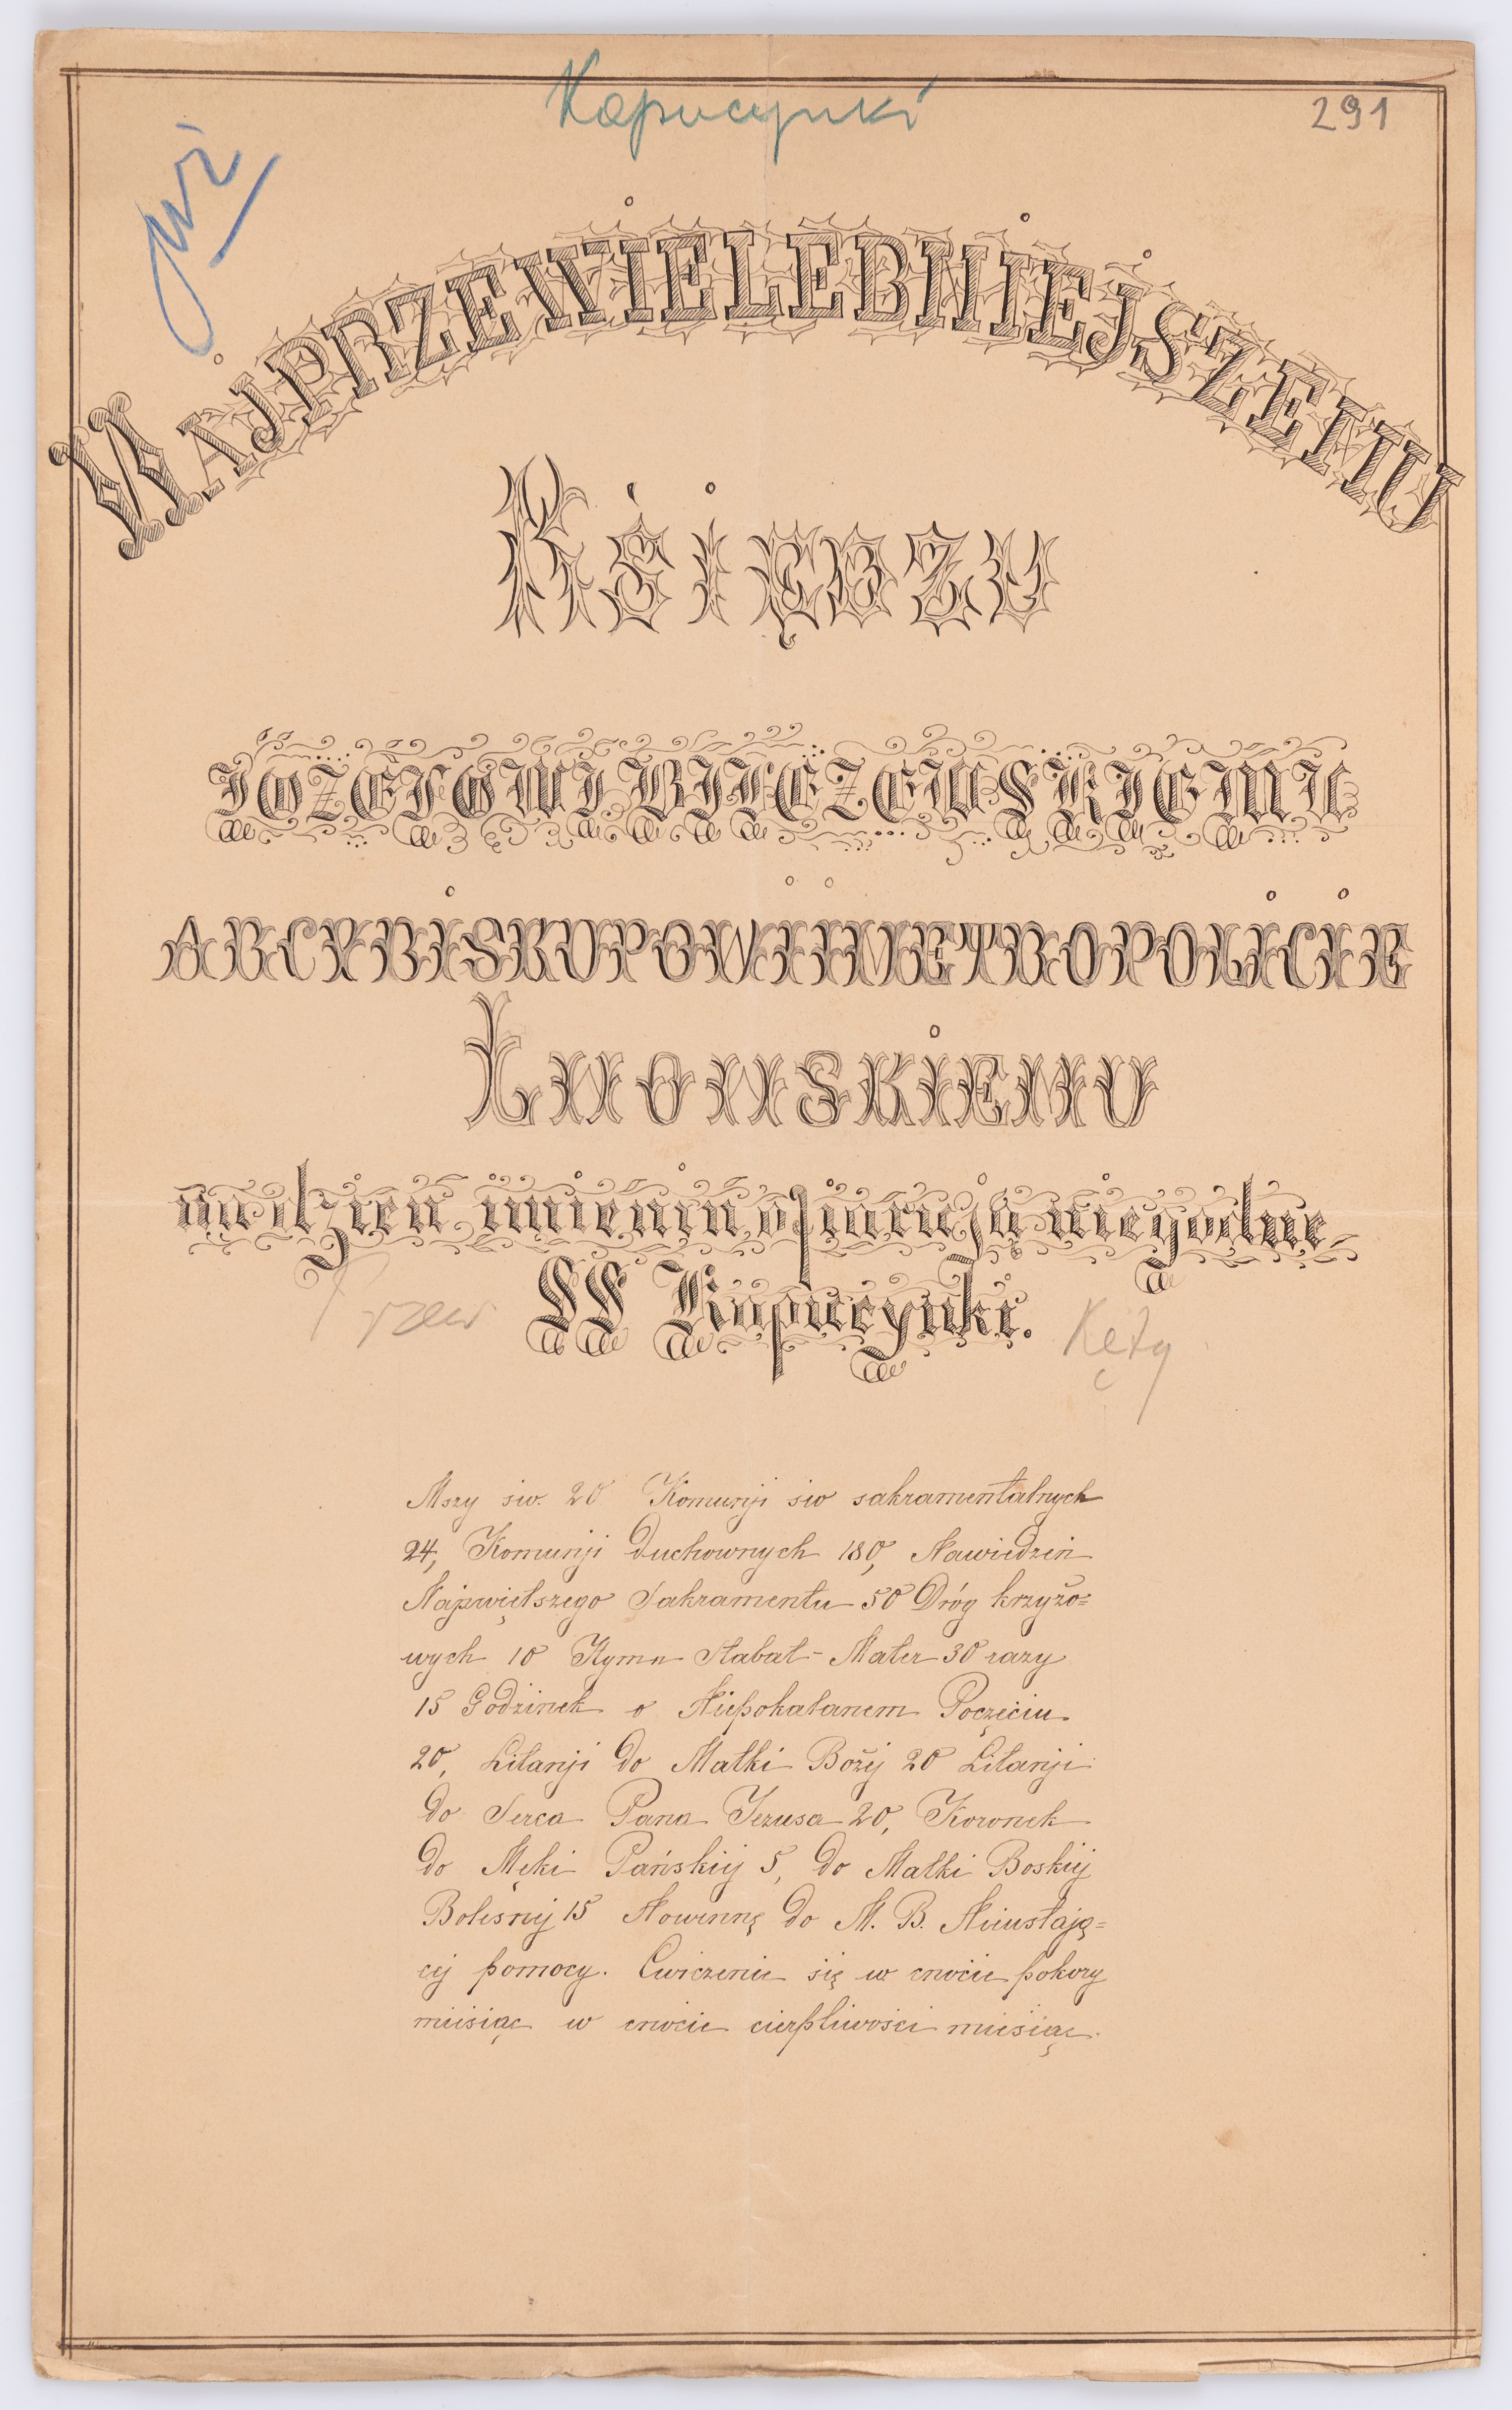 Kapucynki
291
już
NAJPRZEWIELEBNIEJSZEMU
KSIĘDZU
JOZEFOWI BILCZEWSKIEMU
ARCYBISKUPOWI I METROPOLICIE
LWOWSKIEMU
na dzien imienin ofiaruja niegodne
SS Kapucynki.
Kęty
Mszy św. 20 Komunji św sakramentalnych
24, Komunji duchownych 180, Nawiedzeń
Najświętszego Sakramentu 50 Dróg krzyżo=
wych 10 Hymn Stabat-Mater 30 razy
15 Godzinek o Niepokalanem Poczęciu
20, Litanji do Matki Bożej 20 Litanji
do Serca Pana Jezusa 20, Koronek
do Męki Pańskiej 5, do Matki Boskiej
Bolesnej 15 Nowennę do M. B. Nieustają=
cej pomocy. Cwiczenie się w cnocie pokory
miesiąc w cnocie cierpliwości miesiąc.